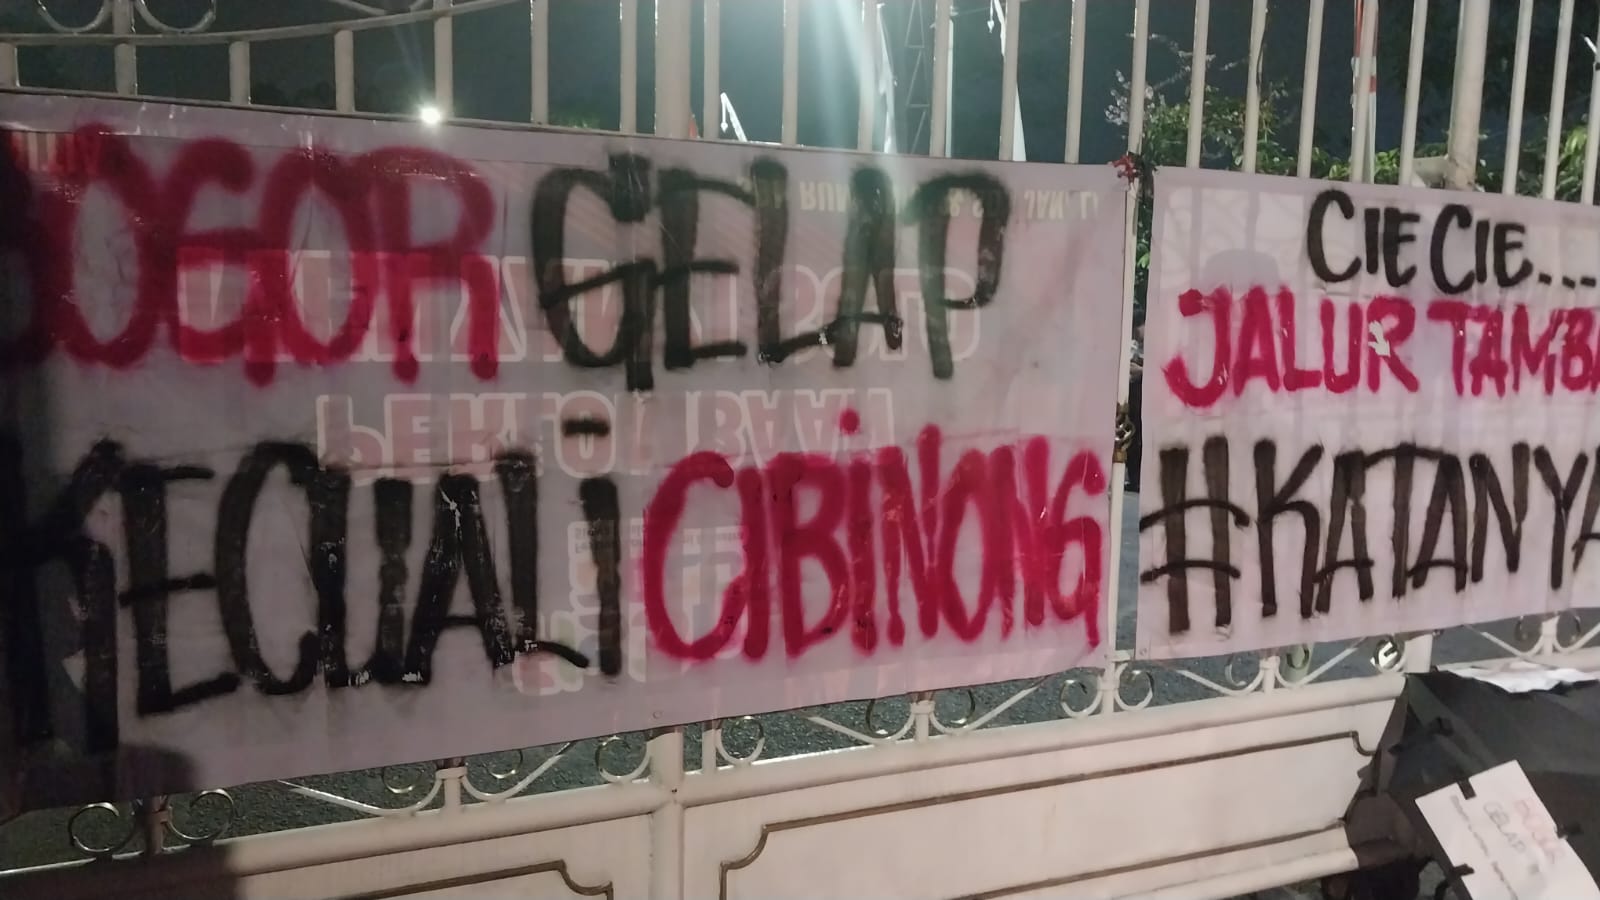 BOGOR GELAP
KECUALI CIBINONG
CIE CIE...
JALUR TAMBA
#KATANYA
BOGOR
GELAP!!